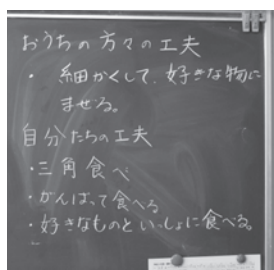 おうちの方々の工夫
・細かくして、好きな物に
まぜる。
自分たちの工夫
・三角食べ
・がんばって食べる
・好きなものといっしょに食べる。